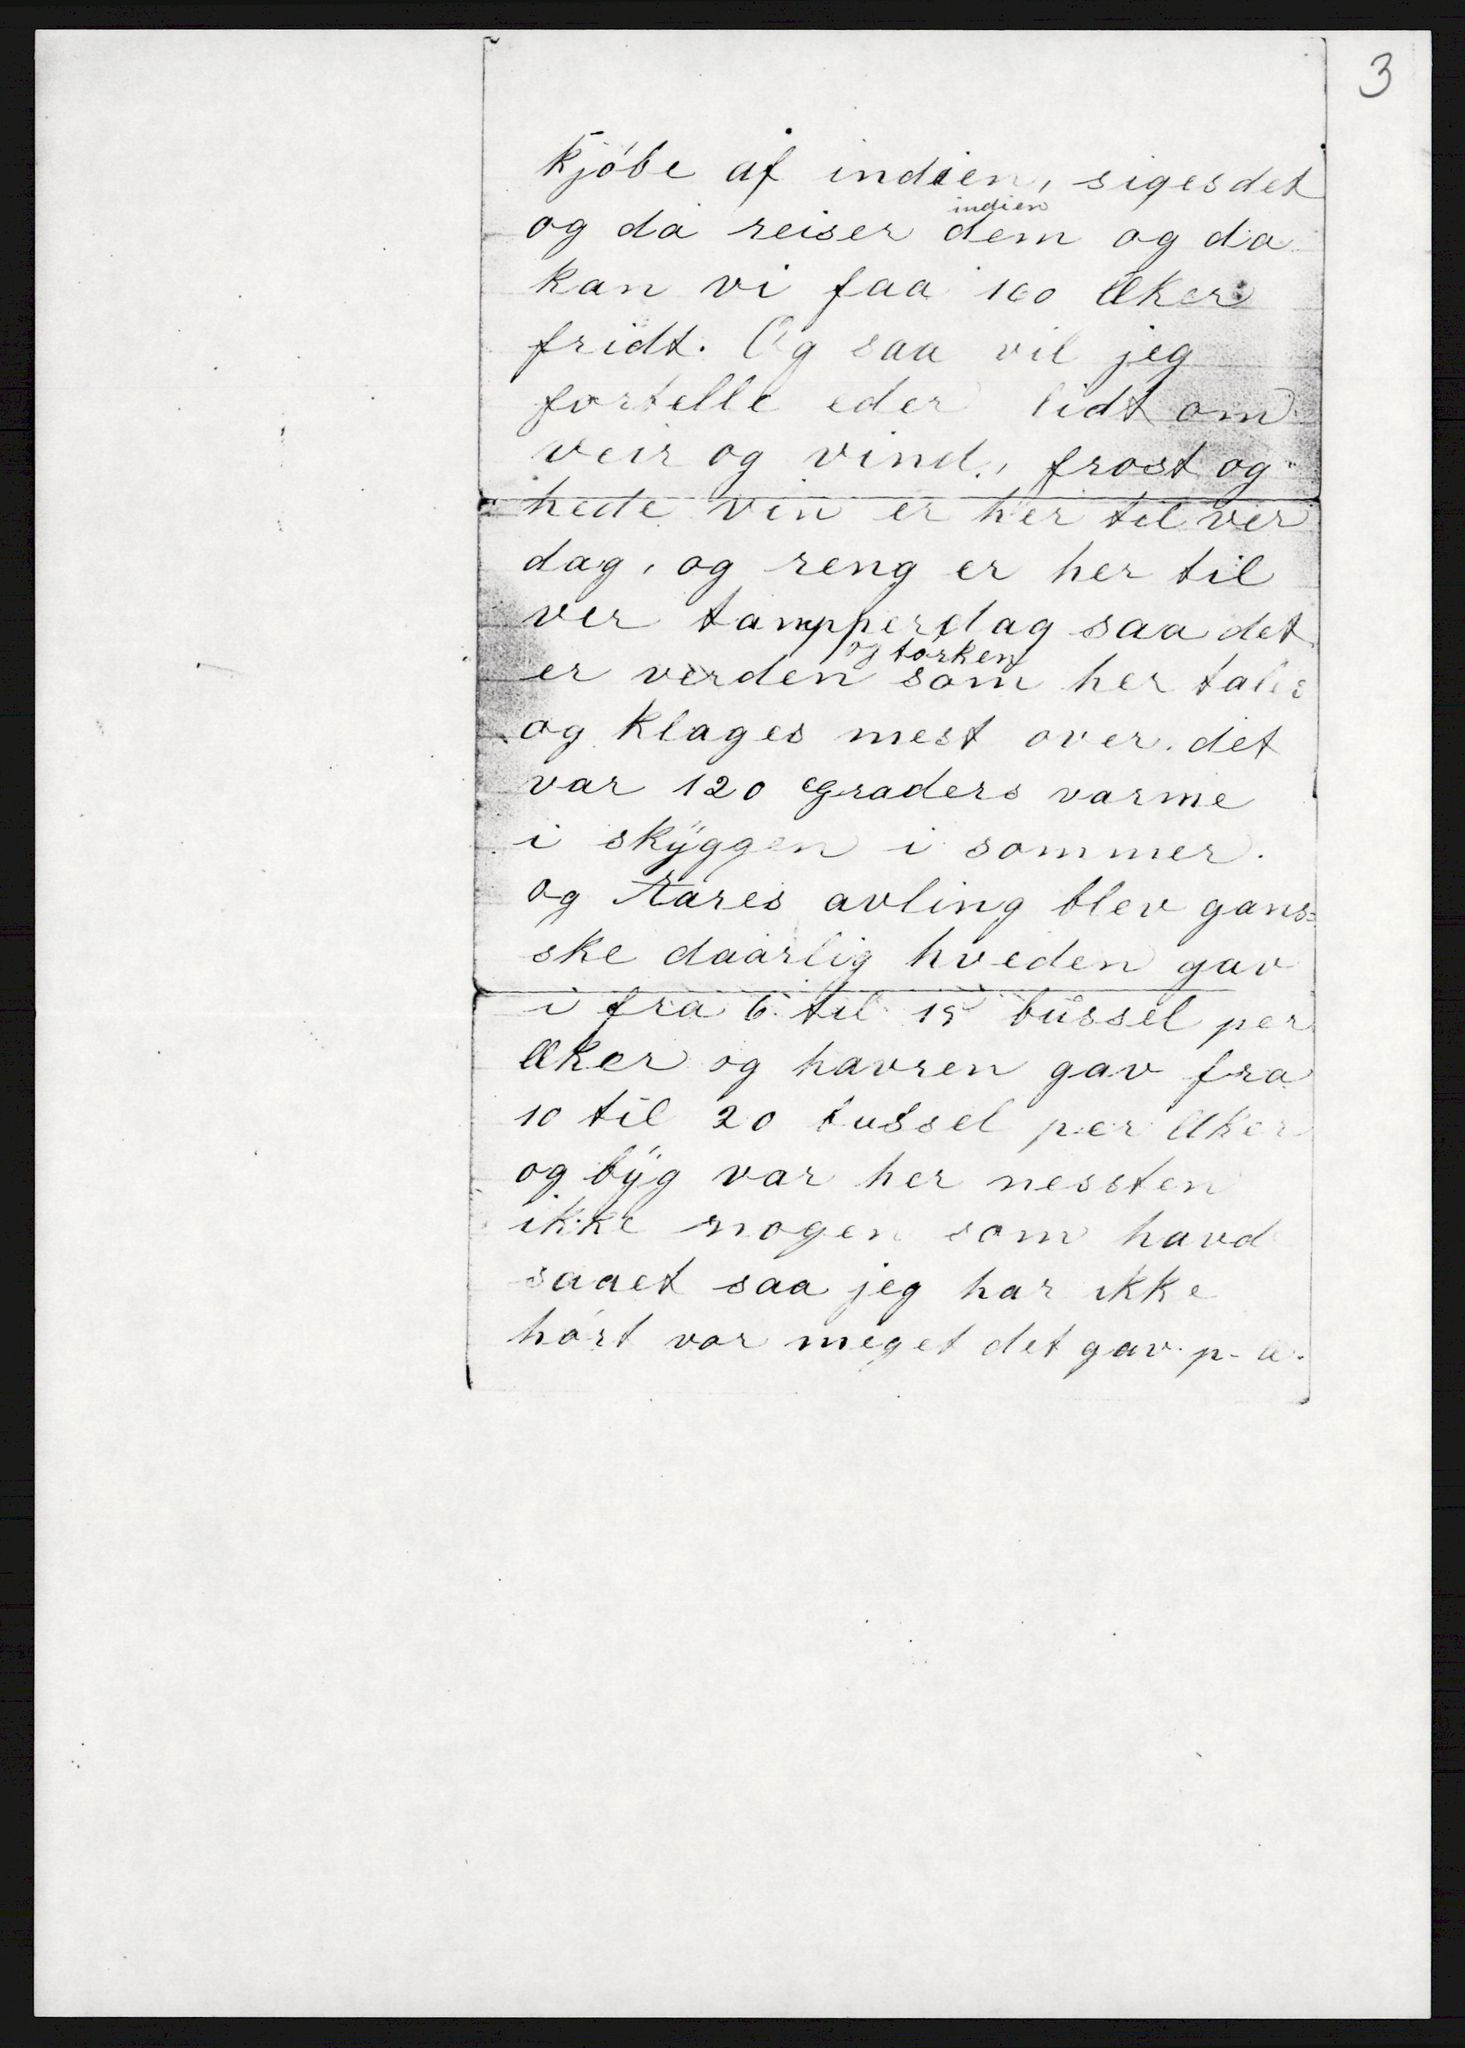 3
kjóbe af indien, siges det
og da reiser dem og da
indien
kan vi faa 160 Æker
fridt. Og saa vil jeg
fortelle eder lidt om
veir og vind, frost og
hede vin er her til ver
dag, og reng er her til
ver tampperdag saa det
og tórken
er verden som her tales
og klages mest over. det
var 120 Graders varme
i skÿggen i sommer.
og Aares avling blev gans-
ske daarlig hveden gav
i fra 6 til 15 bussel per
Æker og havren gav fra
10 til 20 bussel per Æker
og bÿg var her nessten
ikke nogen som havd
saaet saa jeg har ikke
hórt vor meget det gav. p. æ.